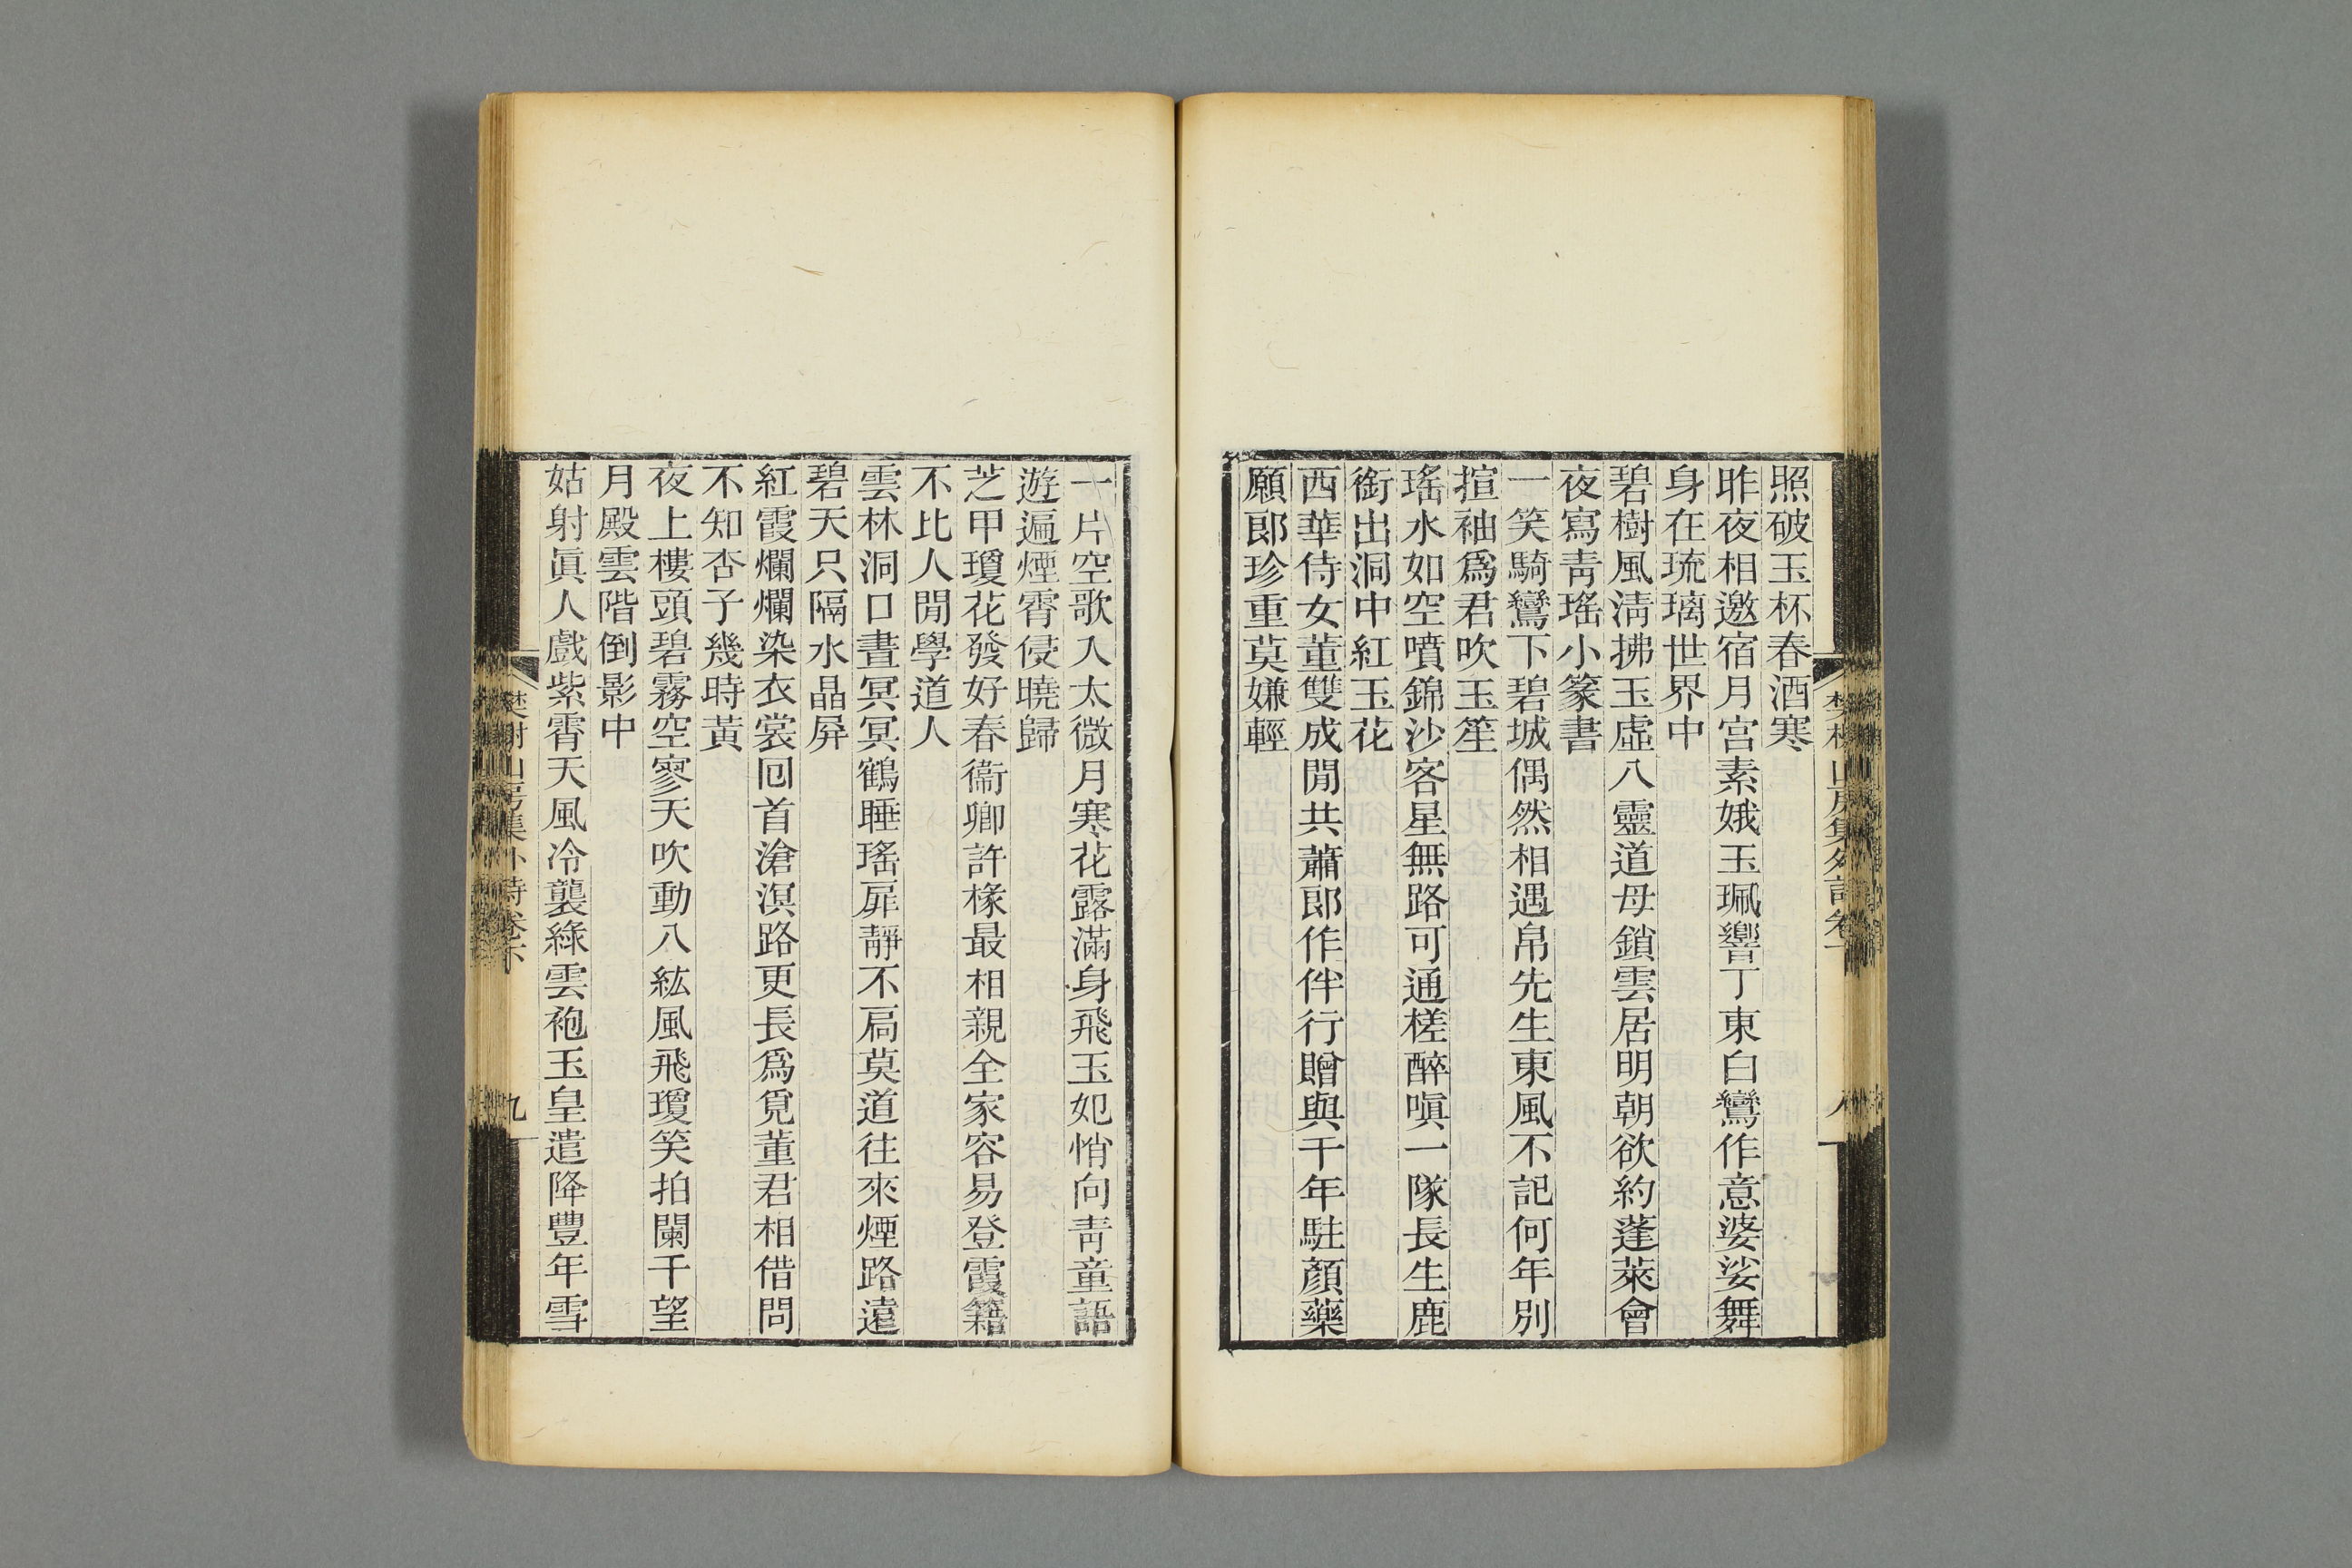 照破玉杯春酒寒
昨夜相邀宿月宮素娥玉珮響丁東白鸞作意婆娑舞
身在琉璃世界中
碧樹風淸拂玉虛八靈道母鎖雲居明朝欲約蓬萊會
夜寫靑瑤小篆書
一笑騎鸞下碧城偶然相遇帛先生東風不記何年別
揎袖爲君吹玉笙
瑤水如空噴錦沙客星無路可通槎醉嗔一隊長生鹿
銜出洞中紅玉花
西華侍女董雙成閒共蕭郎作伴行贈與千年駐顏藥
願郎珍重莫嫌輕
一片空歌入太微月寒花露滿身飛玉妃悄向靑童語
遊遍煙霄侵曉歸
芝甲瓊花發好春衞卿許椽最相親全家容易登霞籍
不比人閒學道人
雲林洞口晝冥冥鶴睡瑤扉靜不扃莫道往來煙路遠
碧天只隔水晶屏
紅霞爛爛染衣裳回首滄溟路更長爲覓董君相借問
不知杏子幾時黃
夜上樓頭碧霧空寥天吹動八紘風飛瓊笑拍闌干望
月殿雲階倒影中
姑射眞人戲紫霄天風冷襲綠雲袍玉皇遣降豐年雪
樊榭山房集外詩卷下
九